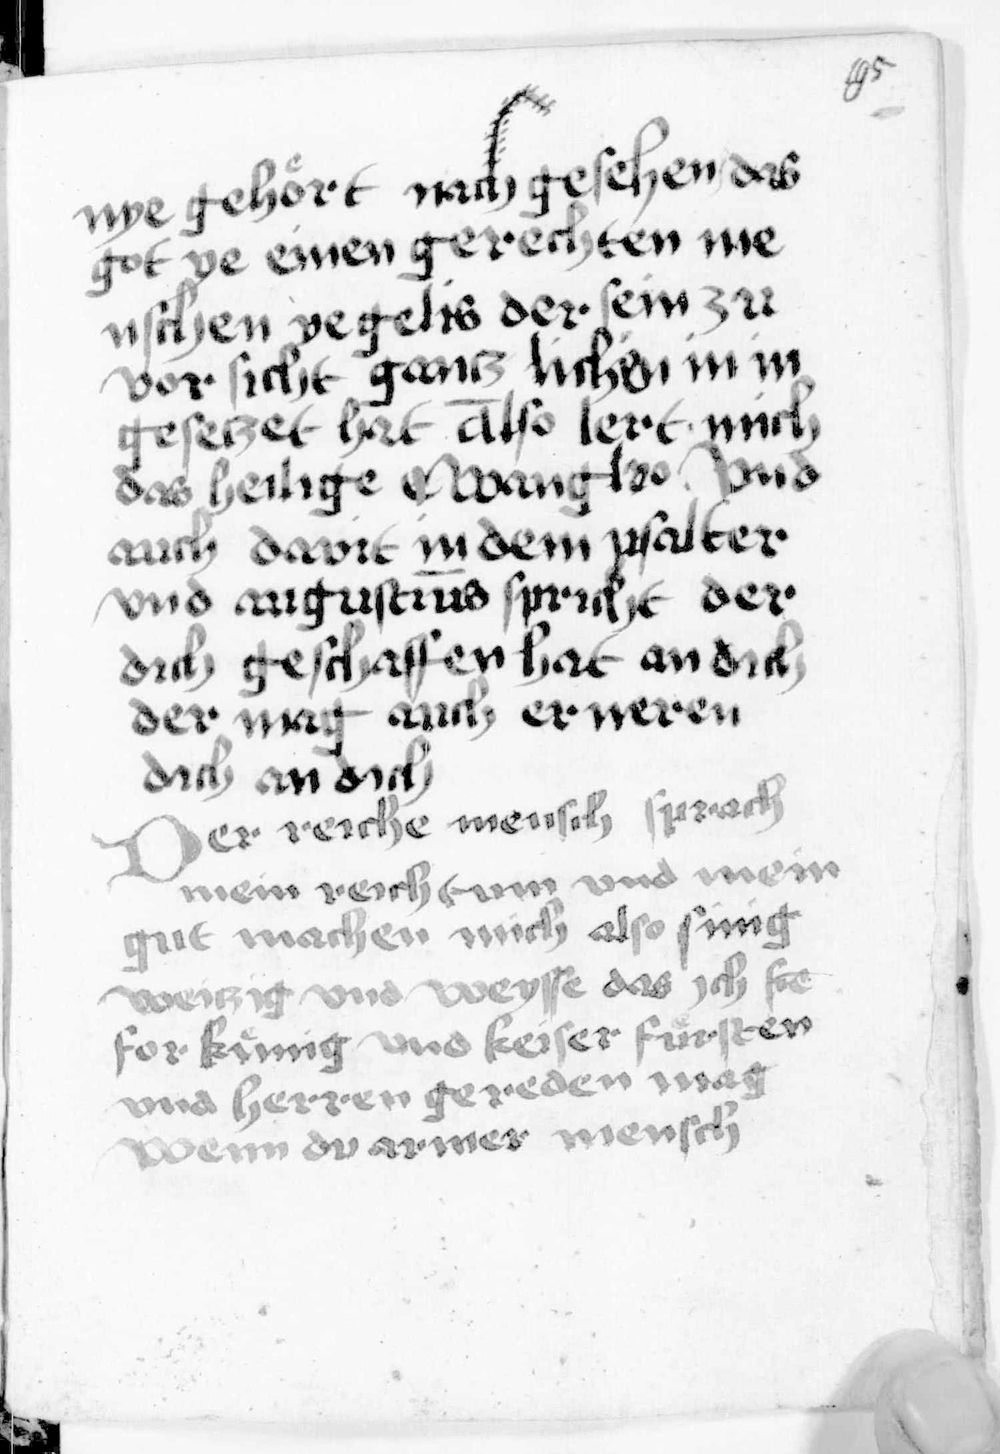 195
nye gehoͤrt nach gesehen das
got ye einen gerechten me
nschen ye gelis der sein zu
vor sicht gantz lichen in in
gesetzet hat also lert mich
das heilige ewangleo Vnd
auch davit in dem psalter
vnd augustin̄us spricht der
dich geschaffen hat an dich
der mag auch er neren
dich an dich
Der reiche mensch sprach
mein reichtum vnd mein
gut machen mich also sinig
weitzig vnd weysse das ich
for kuͤnig vnd keiser fuͤrsten
vnd herren gereden mag
Wenn du armer mensch